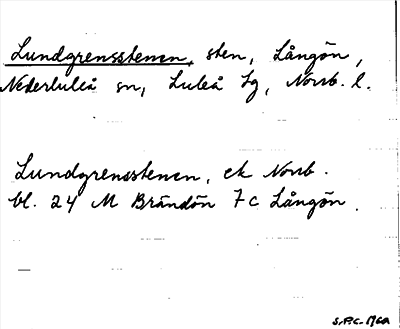 Lundgrensstenen, sten, Långön,
Nederluleå sn, Luleå tg, Norrb. l.
Lundgrensstenen, ek Norrb.
bl. 24 M Brändön 7c Långön.